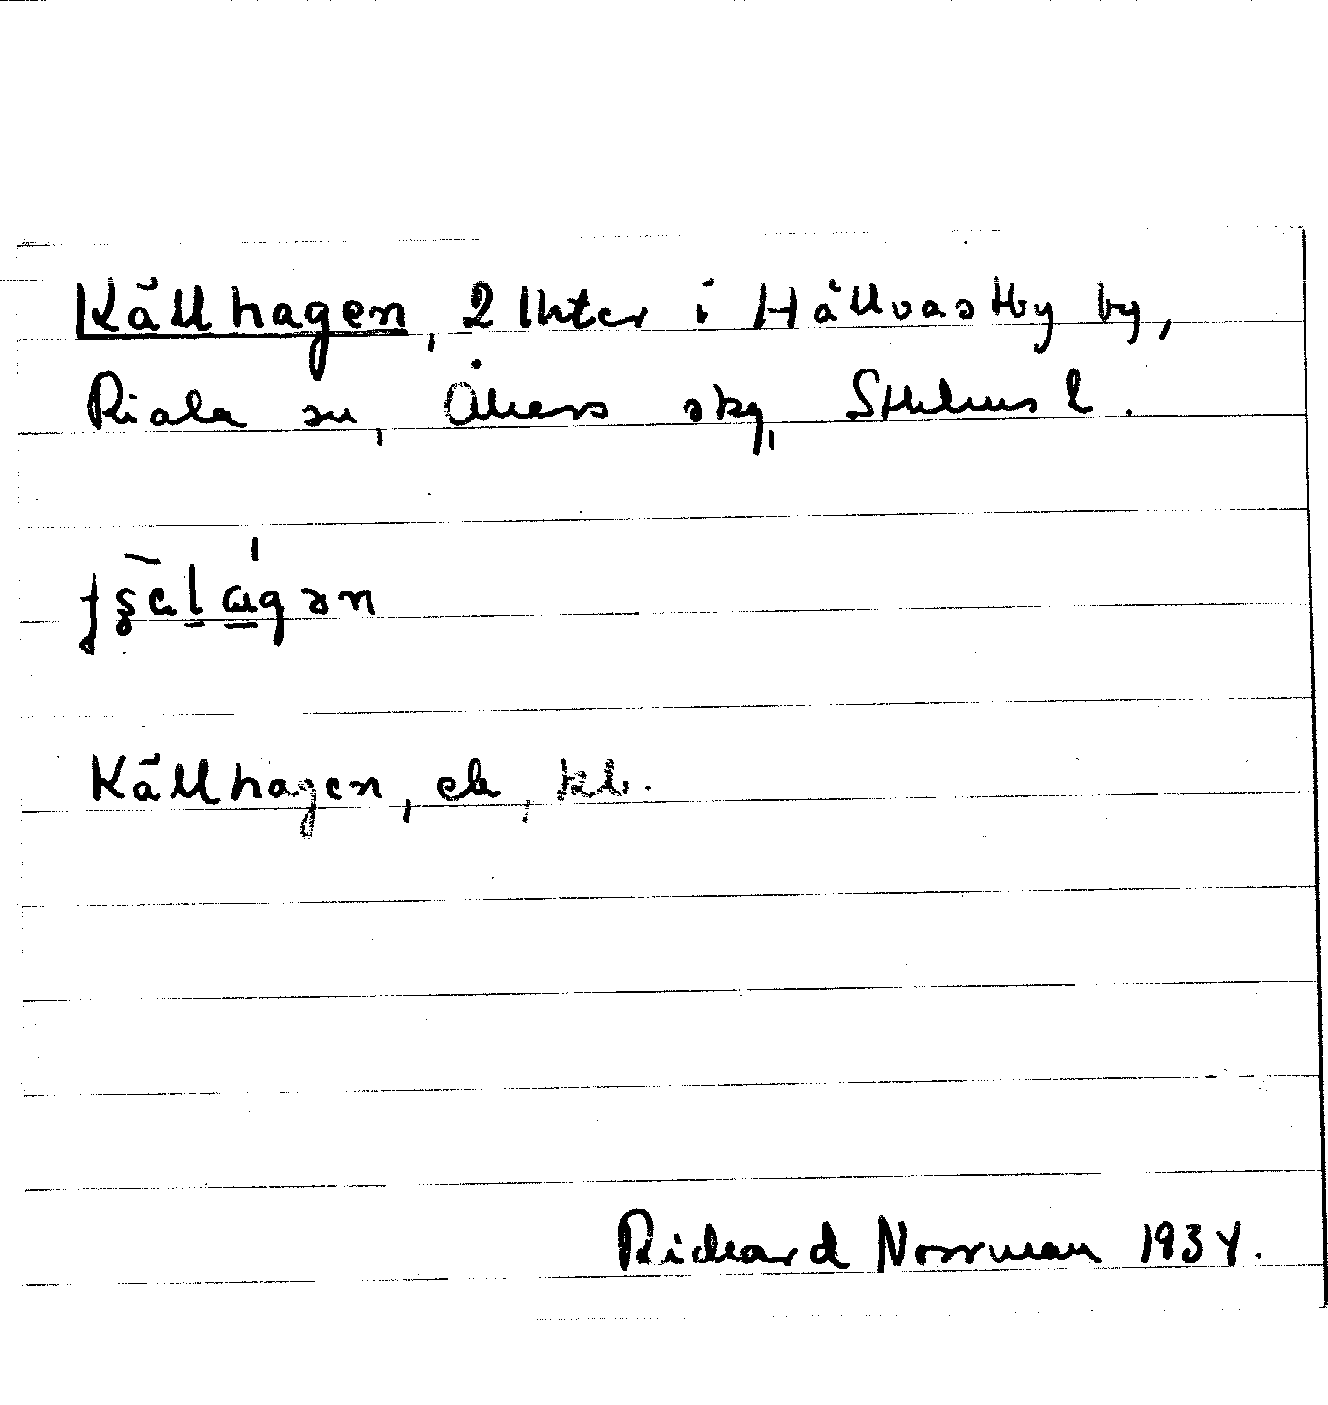 Källhagen, 2 lhter i Hållvastby by,
Riala sn, Åkers skg, Sthlms l.
Källhagen, ek, kb.
Rickard Norrman 1934.